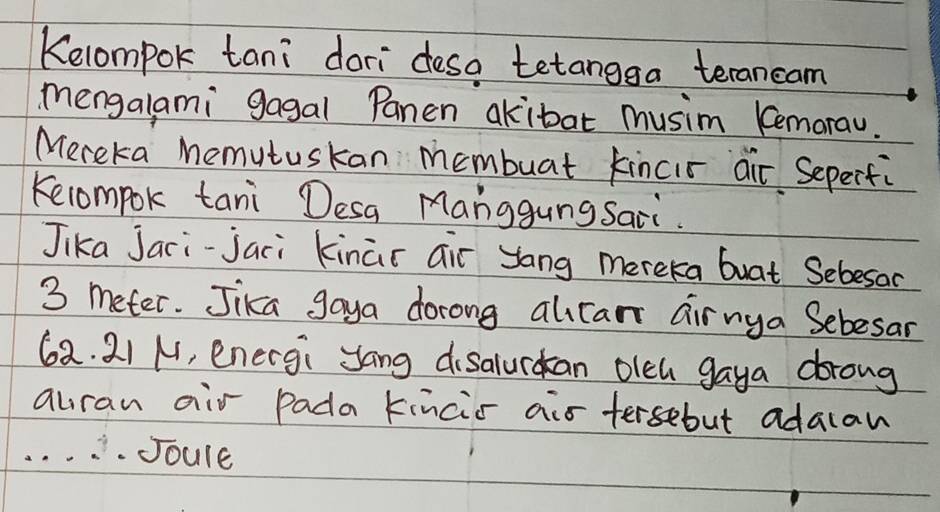 Kelompok tani dari desa tetangga terancam
mengalami gagal Panen akibat musim kemarau.
Mereka memutuskan membuat kincir air seperti
Kelompok tani Desa Manggungsari.
Jika Jari-jari kincir air yang mereka buat Sebesar
3 meter. Jika gaya dorong aliran airnya Sebesar
62.21 N, energi yang disalurkan oleh gaya dorong
aliran air pada kincir air tersebut adalah
...... Joule